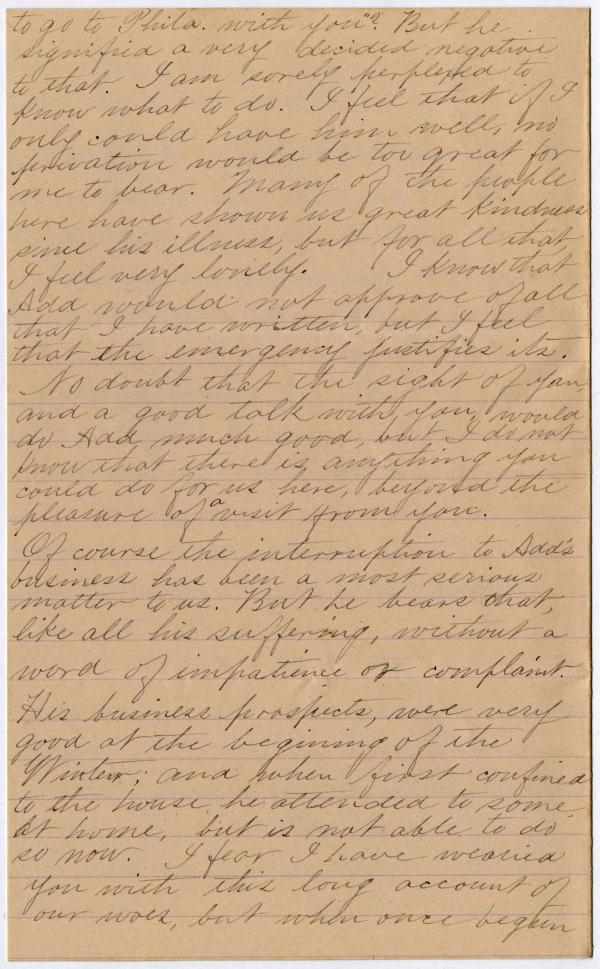 to go to Phila. with you"? But he
signified a very decided negative
to that. I am sorely perplexed to
know what to do. I feel that if I
only could have him well, no
privation would be too great for
me to bear. Many of the people
here have shown us great kindness
since his illness, but for all that
I feel very lonely. I know that
Add would not approve of all
that I have written, but I feel
that the emergency justifies its.
No doubt that the sight of you,
and a good talk with you, would
do Add much good, but I do not
know that there is anything you
could do for us here, beyond the
pleasure of a visit from you.
Of course the interruption to Add's
business has been a most serious
matter to us. But he bears that,
like all his suffering, without a
word of impatience or complaint.
His business prospects, were very
good at the begining of the
Winter; and when first confined
to the house he attended to some
at home, but is not able to do
so now. I fear I have wearied
you with this long account of
our woes, but when once begun